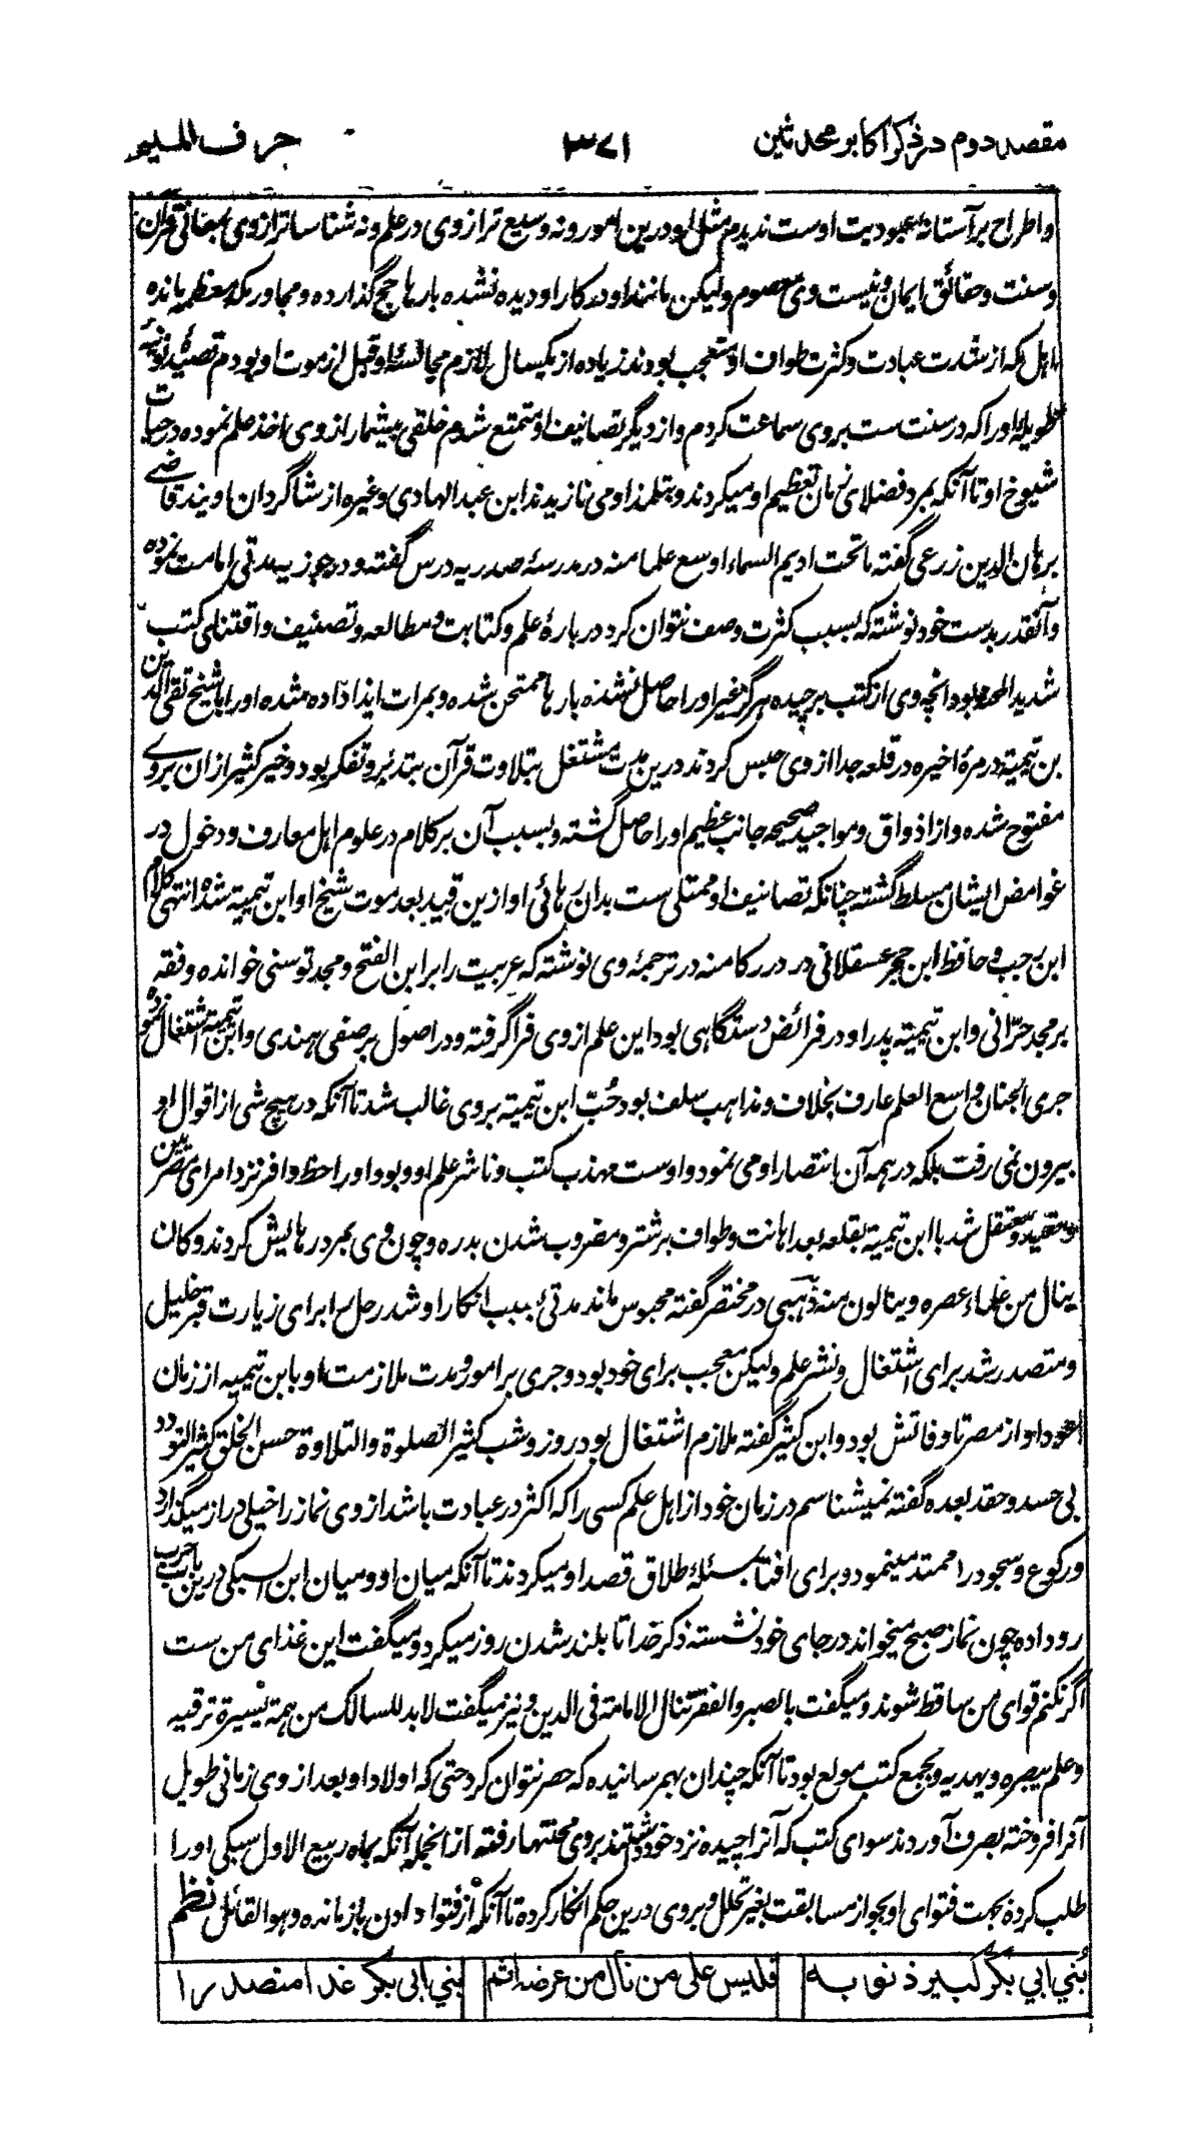 مقصد دوم در ذکر اکابر محدثین ۳۷۱ حرف المیم
و اطراح بر آستانهٔ عبودیت اوست ندیدم مثل او درین امور و نه وسیع تر از وی در علم و نه شناساتر از وی بمعانی قرآن
و سنت و حقائق ایمان و نیست وی معصوم ولیکن مانند او کار او دیده نشده بارها حج گذارده و مجاور مکه معظمه مانده
اهل مکه از شدت عبادت و کثرت طواف او متعجب بودند زیاده از یکسال ملازم مجالسهٔ او قبل از موت او بودم قصیدهٔ نونیه
طویلهٔ او را که در سنت ست بر وی سماعت کردم و از دیگر تصانیف او متمتع شدم خلقی بیشمار از وی اخذ علم نموده در حیات
شیوخ او تا آنکه بمرد فضلای زمان تعظیم او میکردند و بتلمذ او می نازیدند ابن عبد الهادی و غیره از شاگردان اویند قاضی
برهان الدین زرعی گفته ما تحت ادیم السماء اوسع علما منه در مدرسهٔ صدریه درس گفته و در جوزیه مدتی امامت نموده
و آنقدر بدست خود نوشته که بسبب کثرت وصف نتوان کرد در بارهٔ علم و کتابت و مطالعه و تصنیف و اقتنای کتب
شدید المحبة بود آنچه وی از کتب برچیده هرگز غیر او را حاصل نشده بارها ممتحن شده و بمرات ایذا داده شده او را با شیخ تقی الدین
بن تیمیة در مرهٔ اخیره در قلعه جدا از وی حبس کردند درین مدت مشتغل بتلاوت قرآن بتدبر و تفکر بود و خیر کثیر ازان بر وی
مفتوح شده و از اذواق و مواجید صحیحه جانب عظیم او را حاصل گشته و بسبب آن بر کلام در علوم اهل معارف و دخول در
غوامض ایشان مسلط گشته چنانکه تصانیف او ممتلی ست بدان رهائی او ازین قید بعد موت شیخ او ابن تیمیة شده انتهی کلام
ابن رجب و حافظ ابن حجر عسقلانی در درر کامنه در ترجمهٔ وی نوشته که عربیت را بر ابن الفتح و مجد تونسی خوانده و فقه
بر مجد حرّانی و ابن تیمیة پدر او در فرائض دستگاهی بود این علم از وی فرا گرفته و در اصول بر صفی هندی و ابن تیمیة اشتغال نموده
جری الجنان واسع العلم عارف بخلاف و مذاهب سلف بود حُبّ ابن تیمیة بر وی غالب شد تا آنکه در هیچ شی از اقوال او
بیرون نمی رفت بلکه در همه آن انتصار او می نمود و اوست مهذب کتب و ناشر علم او و بود او را حظ وافر نزد امرای مصریین
و مقید و معتقل شد با ابن تیمیة بقلعه بعد اهانت و طواف بر شتر و مضروب شدن بدره و چون وی بمرد رهایش کردند و کان
ینال من علماء عصره و ینالون منه ذهبی در مختصر گفته محبوس ماند مدتی بسبب انکار او شد رحل را برای زیارت قبر خلیل
و متصدر شد برای اشتغال و نشر علم ولیکن معجب برای خود بود و جری بر امور و مدت ملازمت او با ابن تیمیه از زمان
عود او از مصر تا وفاتش بود و ابن کثیر گفته ملازم اشتغال بود روز و شب کثیر الصلوة و التلاوة حسن الخلق کثیر التودد
بی حسد و حقد بعده گفته نمیشناسم در زمان خود از اهل علم کسی را که اکثر در عبادت باشد از وی نماز را خیلی دراز میگذارد
و رکوع و سجود را ممتد مینمود و برای افتا بمسئلهٔ طلاق قصد او میکردند تا آنکه میان او و میان ابن السبکی درین باب
رو داده چون نماز صبح میخواند در جای خود نشسته ذکر خدا تا بلند شدن روز میکرد و میگفت این غذای من ست
اگر نکنم قوای من ساقط شوند و میگفت بالصبر و الفقر تنال الامامة فی الدین و نیز میگفت لا بد للسالک من همة یسیرة ترقیه
و علم یبصره و یهدیه و بجمع کتب مولع بود تا آنکه چندان بهمرسانیده که حصر نتوان کرد حتی که اولاد او بعد از وی زمانی طویل
آنرا فروخته بصرف آوردند سوای کتب که آنرا چیده نزد خود داشتند بر وی محنتها رفته ازانجمله آنکه بماه ربیع الاول سبکی او را
طلب کرده بجهت فتوای او بجواز مسابقت بغیر محلل و بر وی درین حکم انکار کرده تا آنکه از فتوا دادن باز مانده و هو القائل نظم
بُنَي ابي بکر کبیر ذنوبه فلیس علی من نال من عرضه اثم بُنَي ابی بکر غدا متصدرا